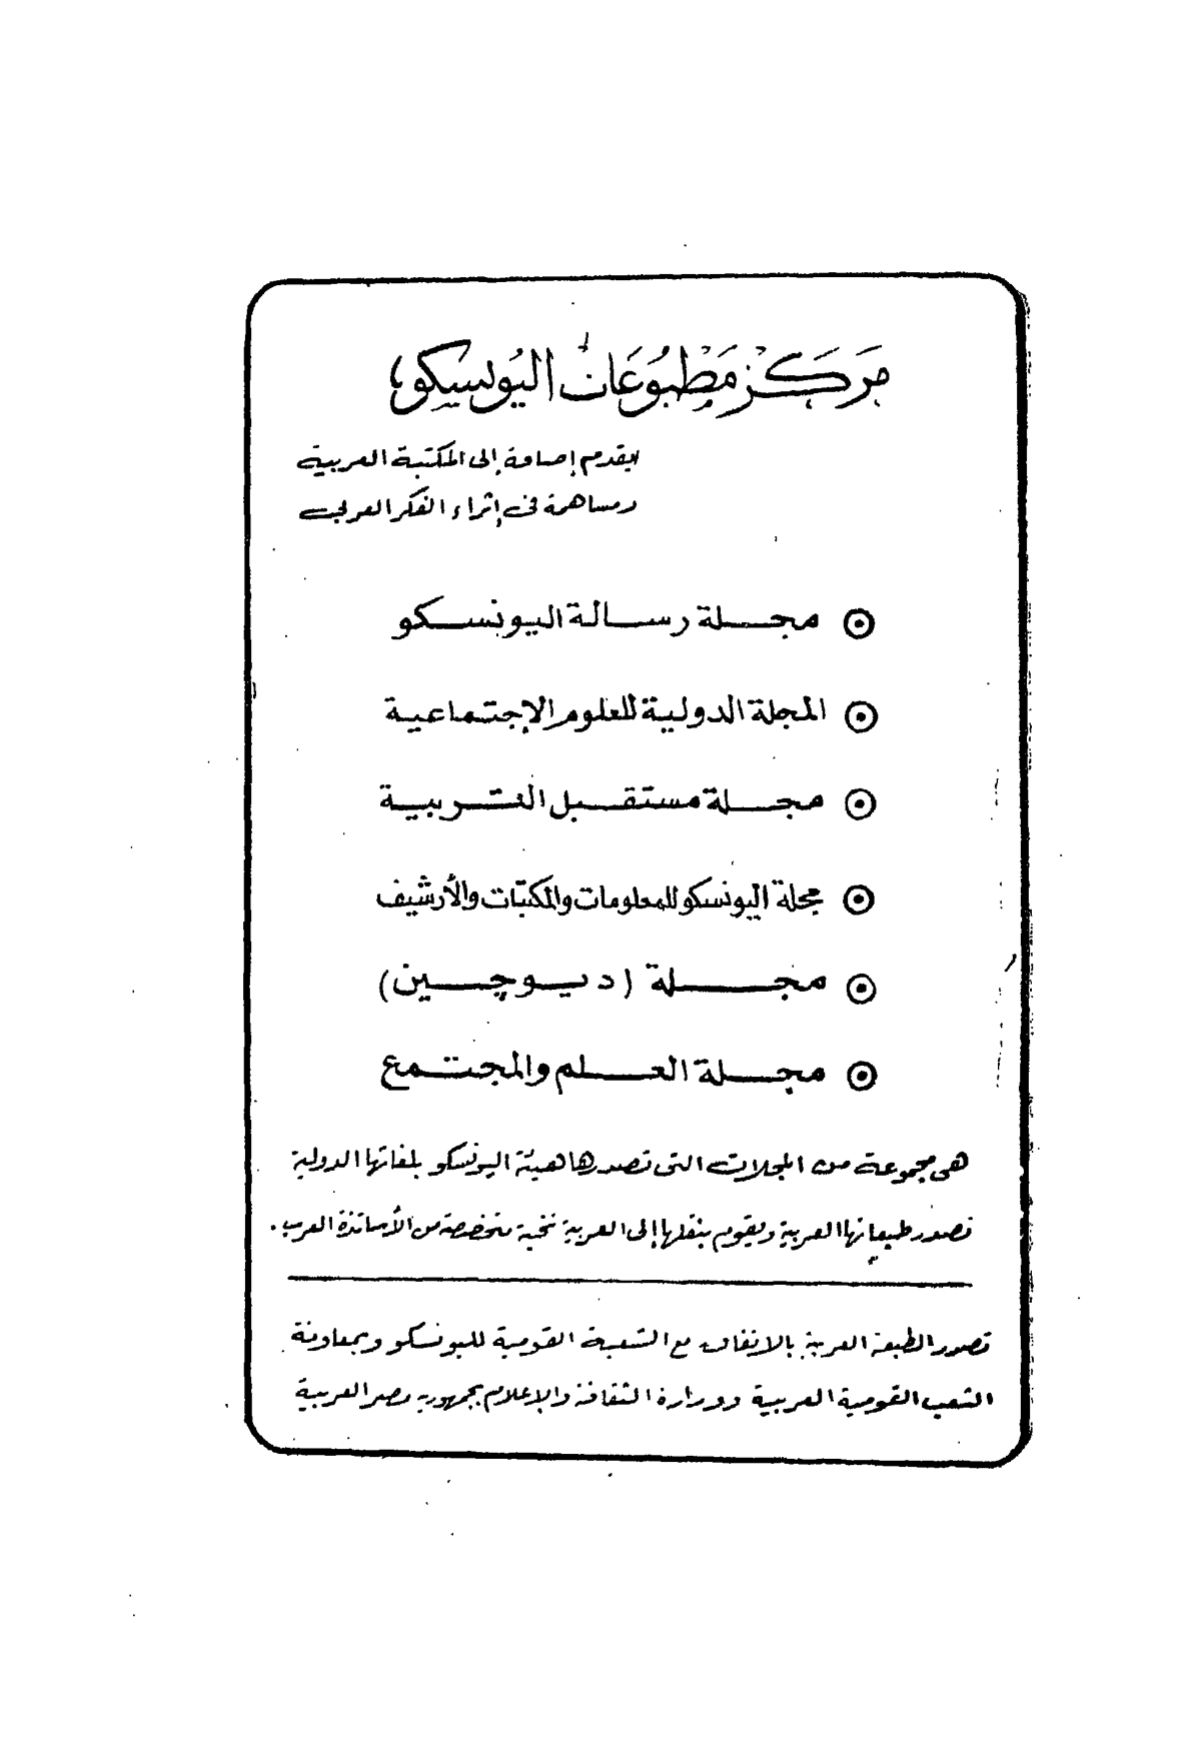 مركز مطبوعات اليونسكو
يقدم إضافة إلى المكتبة العربية
ومساهمة في إثراء الفكر العربي
مجلة رسالة اليونسكو
المجلة الدولية للعلوم الإجتماعية
مجلة مستقبل التربية
مجلة اليونسكو للمعلومات والمكتبات والأرشيف
مجلة (ديوچين)
مجلة العلم والمجتمع
هى مجموعة من المجلات التى تصدرها هيئة اليونسكو بلغاتها الدولية
تصدر طبعاتها العربية ويقوم بنقلها إلى العربية نخبة متخصصة من الأساتذة العرب.
تصدر الطبعة العربية بالاتفاق مع الشعبة القومية لليونسكو وبمعاونة
الشعب القومية العربية ووزارة الثقافة والإعلام بجمهورية مصر العربية